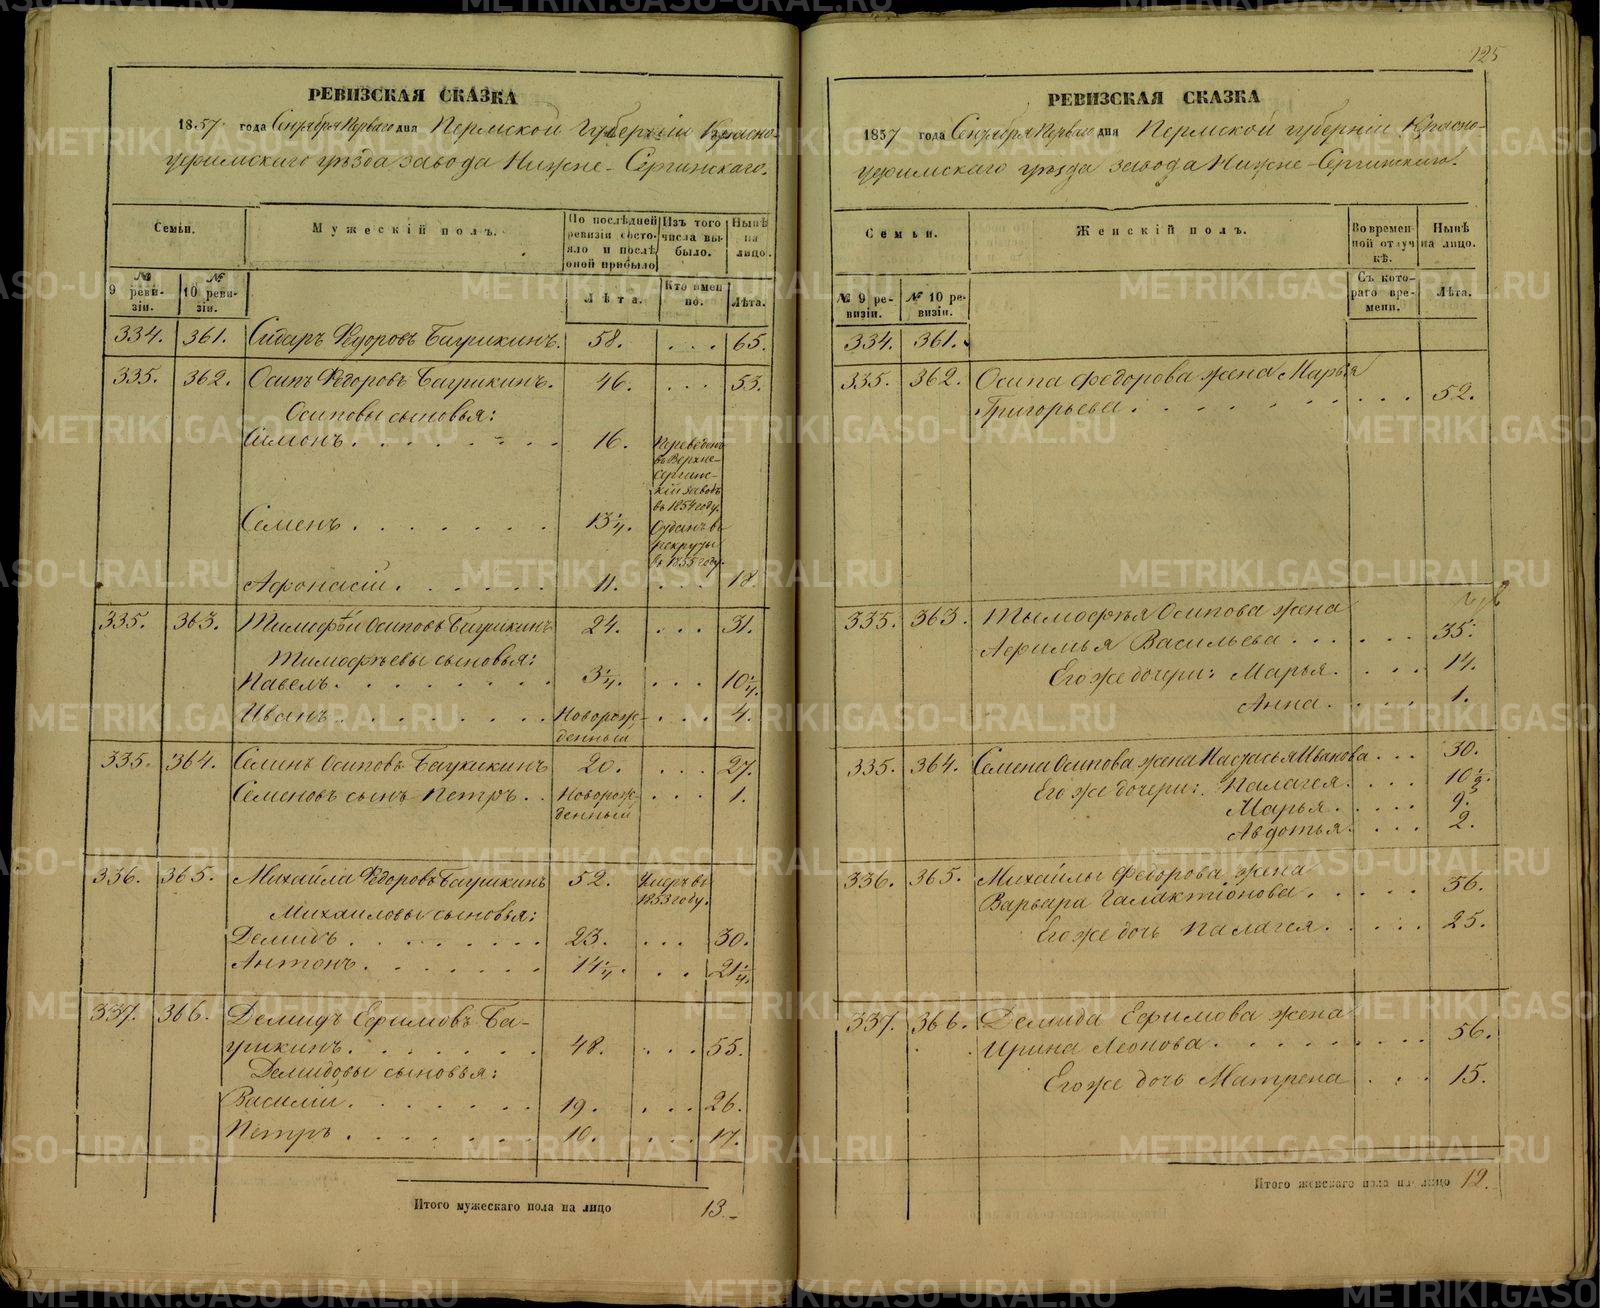 РЕВИЗСКАЯ СКАЗКА
1857 года Сентября Перваго дня Пермской Губерніи Красно-
уфимскаго уѣзда завода Нижне-Сергинскаго.
Семьи.
Мужескій полъ.
По послѣдней ревизіи состояло и послѣ оной прибыло
Изъ того числа выбыло.
Нынѣ на лицо.
№ 9 ревизіи.
№ 10 ревизіи.
Лѣта.
Кто именно.
Лѣта.
334. 361. Сидаръ Федоровъ Багрикинъ. 58. . . . 65.
335. 362. Осипъ Федоровъ Багрикинъ. 46. . . . 53.
Осиповы сыновья:
Симонъ. 16. Переведенъ
въ Верхне-
Сергин-
скій заводъ
въ 1854 году.
Семенъ. 13¼. Отданъ въ
рекруты
въ 1855 году.
Афонасій. 11. . . . 18.
335. 363. Тимофѣй Осиповъ Багрикинъ 24. . . . 31.
Тимофѣевы сыновья:
Павелъ. 3¼. . . . 10¼.
Иванъ. Новорож-
денный . . . 4.
335. 364. Семинъ Осиповъ Багрикинъ 20. . . . 27.
Семеновъ сынъ Петръ. Новорож-
денный . . . 1.
336. 365. Михайла Федоровъ Багрикинъ 52. Умеръ въ
1853 году.
Михаиловы сыновья:
Демидъ. 23. . . . 30.
Антонъ. 14¼. . . 21¼.
337. 366. Демидъ Ефимовъ Ба-
грикинъ. 48. . . . 55.
Демидовы сыновья:
Василій. 19. . . . 26.
Петръ. 10. . . . 17.
Итого мужескаго пола на лицо 13.
125
РЕВИЗСКАЯ СКАЗКА
1857 года Сентября Перваго дня Пермской губерніи Красно-
уфимскаго уѣзда завода Нижне-Сергинскаго.
Семьи.
Женскій полъ.
Во временной отлучкѣ.
Нынѣ на лицо.
№ 9 ревизіи.
№ 10 ревизіи.
Съ котораго времени.
Лѣта.
334. 361.
335. 362. Осипа Федорова жена Марья
Григорьева. 52.
335. 363. Тымофѣя Осипова жена
Афимья Васильева. 35.
Его же дочери: Марья. 14.
Анна. 1.
335. 364. Семена Осипова жена Настасья Иванова. 30.
Его же дочери: Палагея. 10½.
Марья. 9.
Авдотья. 2.
336. 365. Михайлы Федорова жена
Варвара Галактіонова. 56.
Его же дочь Палагея. 25.
337. 366. Демида Ефимова жена
Ирина Леонова. 56.
Его же дочь Матрена 15.
Итого женскаго пола на лицо 12.
METRIKI.GASO-URAL.RU